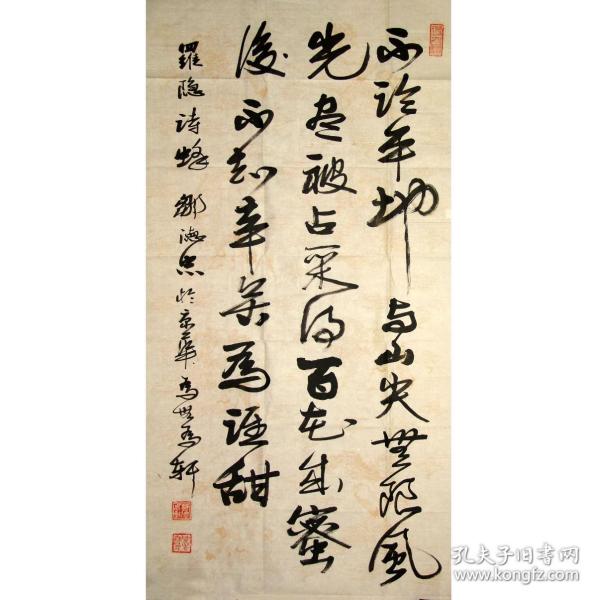 不论平地与山尖无限风
光尽被占采得百花成蜜
後不知辛苦为谁甜
羅隐诗蜂 鄒德忠於京華為無為轩
孔夫子旧书网
www.kongfz.com